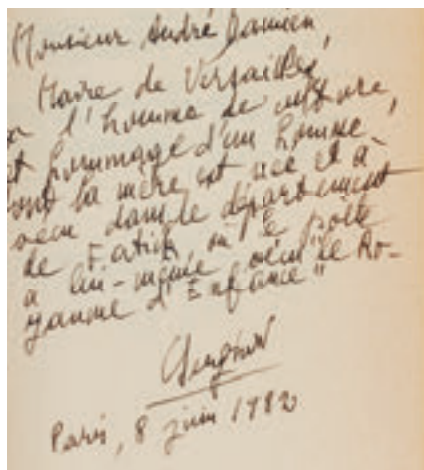 Monsieur André Damien,
Maire de Versailles,
l'homme de culture,
et hommage d'un homme,
dont la mère est née et a
vécu dans le département
de Fatick, où le poète
a lui-même vécu "le Ro-
yaume d'Enfance"
Paris, 8 juin 1982